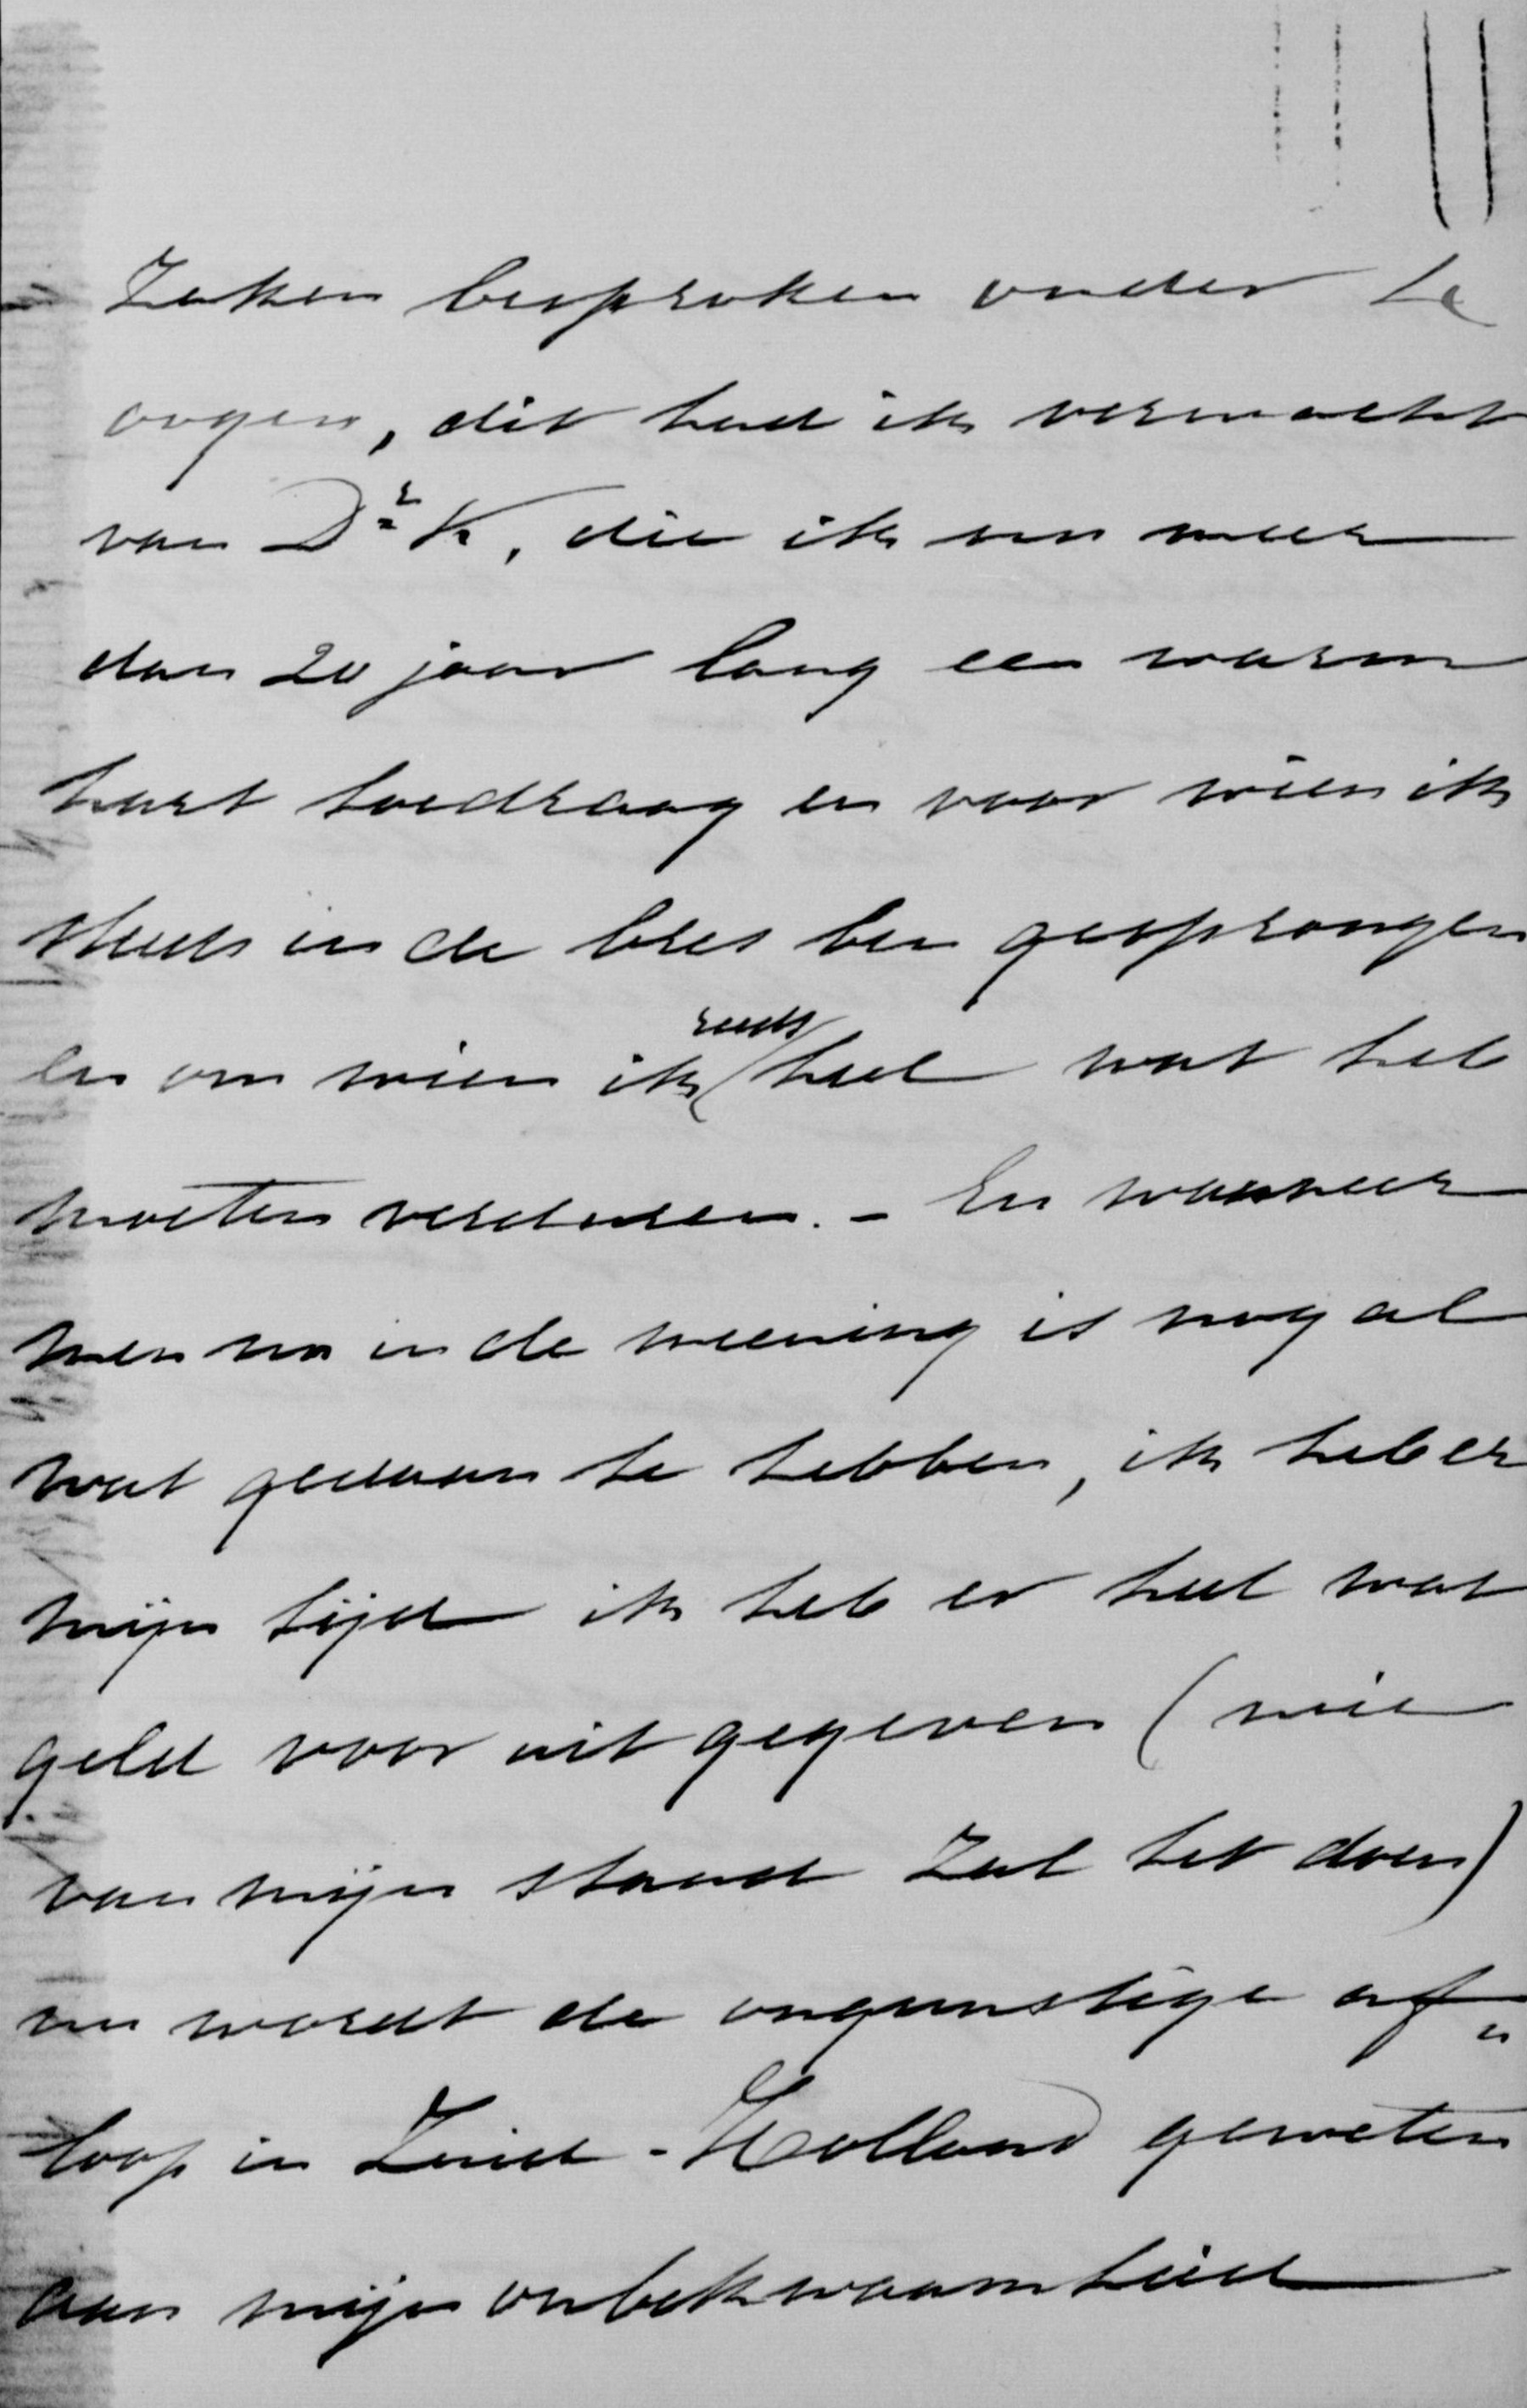 Zaken besproken onder 4
oogen, dit had ik verwacht
van Dr K, die ik nu meer
dan 20 jaar lang een warm
hart toedraag en voor wien ik
steeds in de bres ben gesprongen
en om wien ik reeds heel wat heb
moeten verduren. - En wanneer
men nu in de meening is nog al
wat gedaan te hebben, ik heb er
mijn tijd ik heb er heel wat
geld voor uit gegeven (wie
van mijn stand zal het doen)
nu wordt de ongunstige af„
loop in Zuid-Holland geweten
aan mijn onbekwaamheid